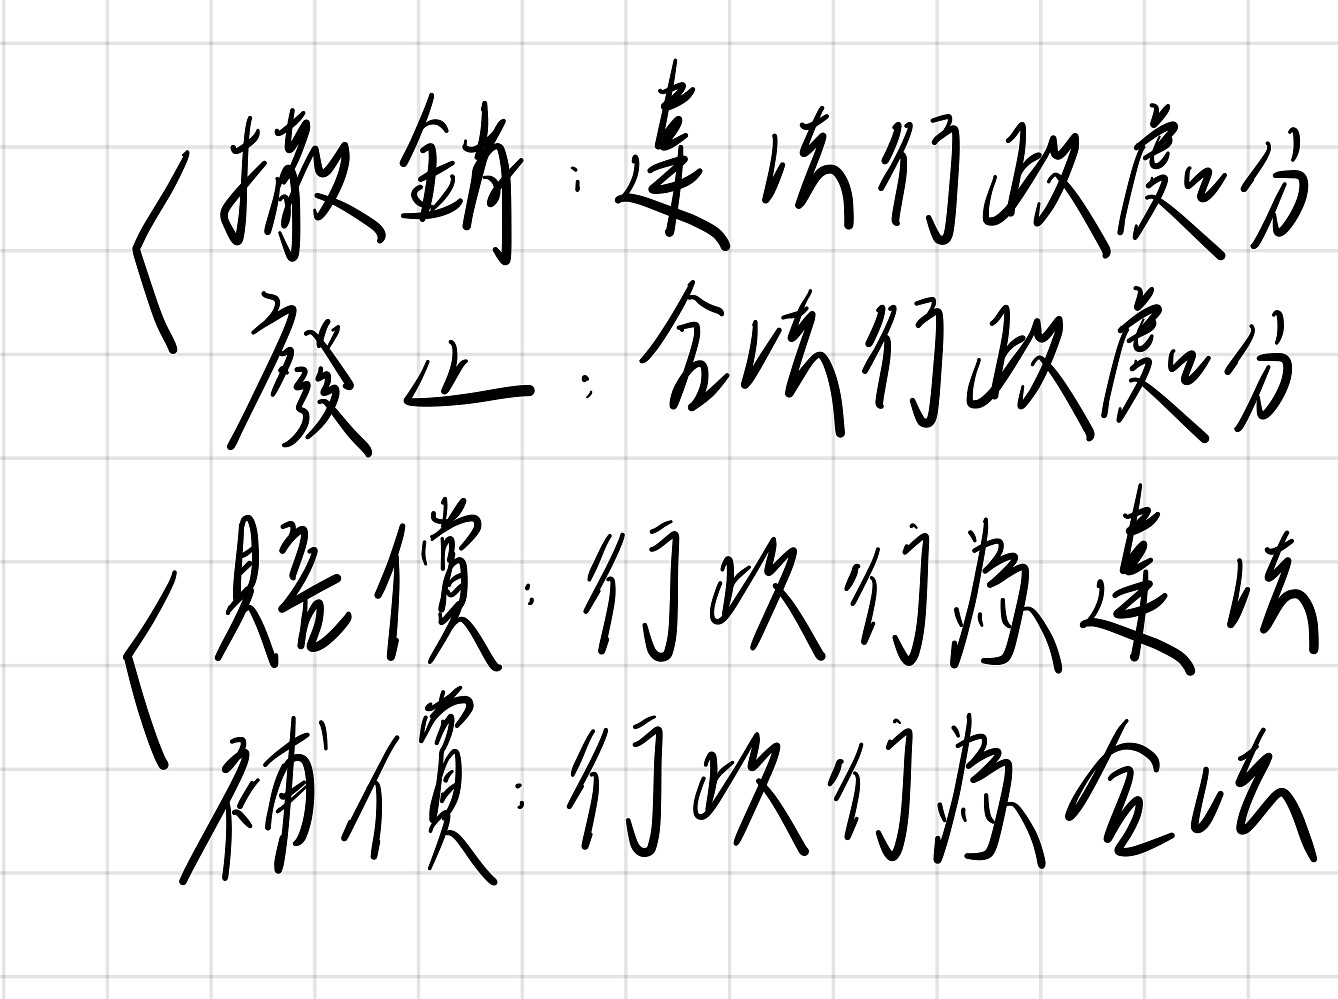 撤銷：違法行政處分
廢止：合法行政處分
賠償：行政行為違法
補償：行政行為合法